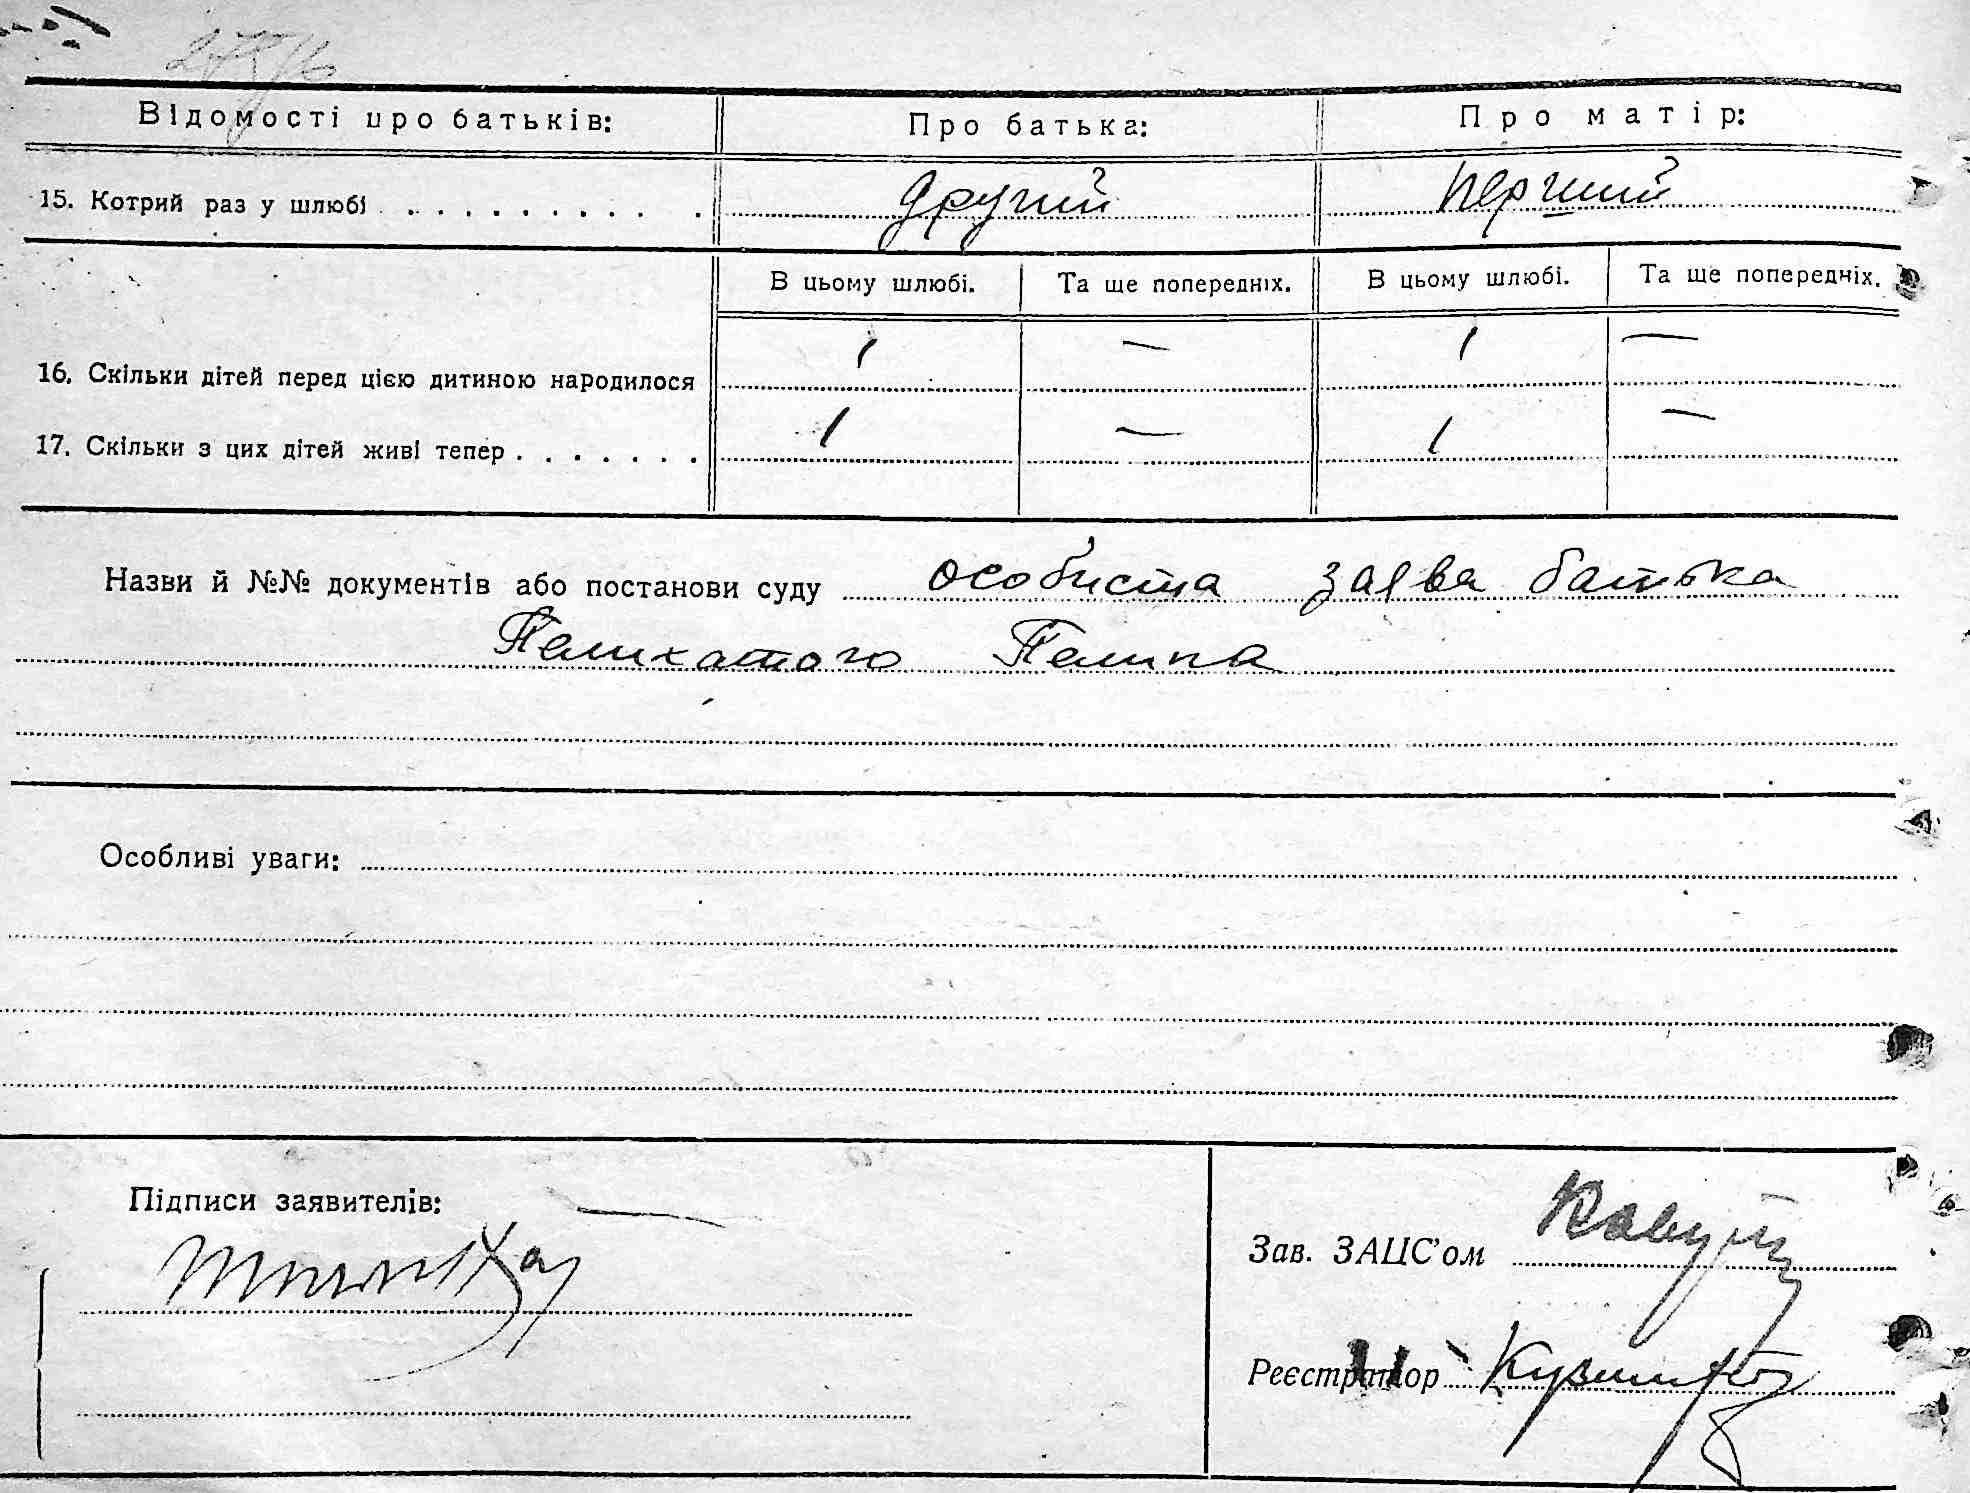 Відомості про батьків:
Про батька:
Про матір:
15. Котрий раз у шлюбі . . . . . . . . . . .
другий
перший
В цьому шлюбі.
Та ще попередніх.
В цьому шлюбі.
Та ще попередніх.
16. Скільки дітей перед цією дитиною народилося
1 — 1 —
17. Скільки з цих дітей живі тепер . . . . . . .
1 — 1 —
Назви й №№ документів або постанови суду особиста заява батька
Пелихатого
Особливі уваги:
Підписи заявителів:
Зав. ЗАЦС'ом
Реєстратор